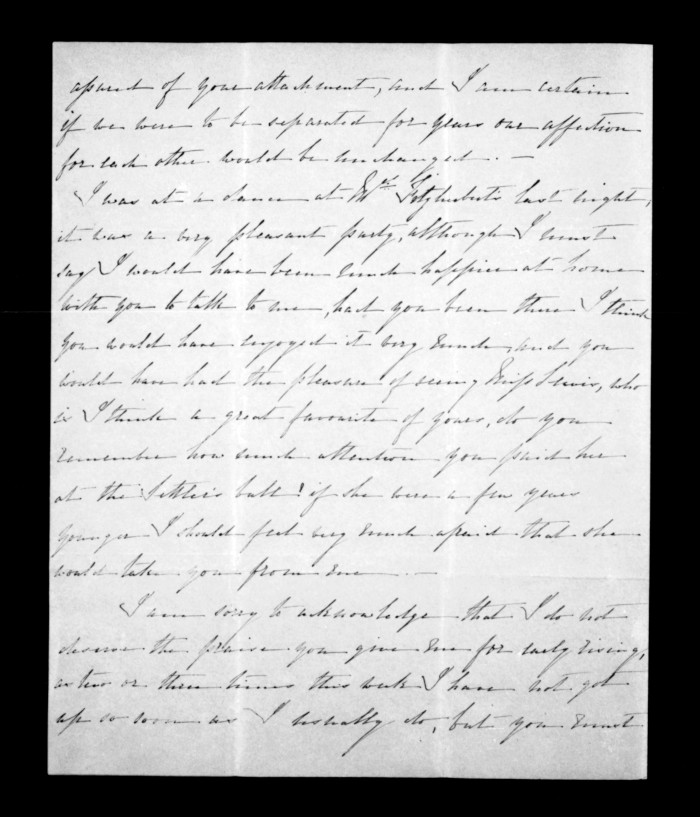 assured of your attachment, and I am certain
if we were to be separated for years our affection
for each other would be unchanged. —
I was at a dance at Mrs. Fitzherberts last night,
it was a very pleasant party, although I must
say I would have been much happier at home
with you to talk to me, had you been there I think
you would have enjoyed it very much, and you
would have had the pleasure of seeing Miss Lewis, who
is I think a great favourite of yours, do you
remember how much attention you paid her
at the Settler's ball! if she were a few years
younger I should feel very much afraid that she
would take you from me. —
I am sorry to acknowledge that I do not
deserve the praise you give me for early rising,
as two or three times this week I have not got
up so soon as I usually do, but you must